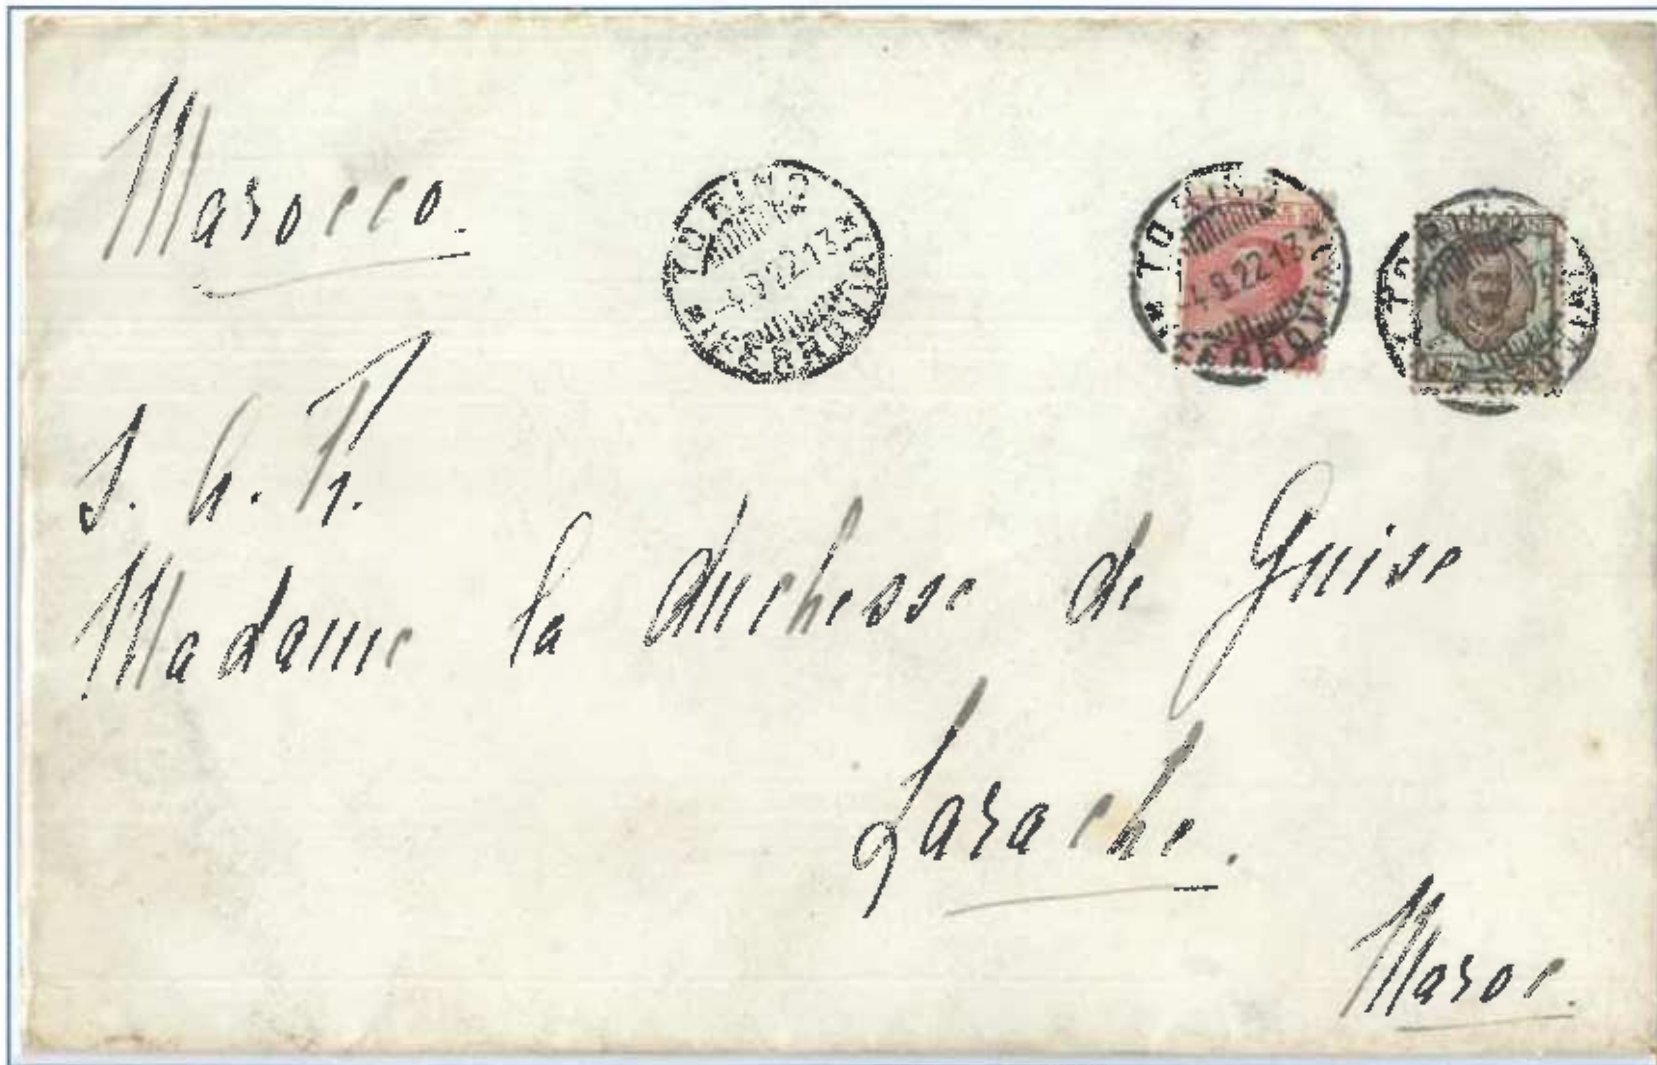 Marocco.
* TORINO *
-4.9.22.13
FERROVIA
* TORINO *
-4.9.22.13
FERROVIA
S. A. R.
Madame la duchesse de Guise
Larache.
Maroc.